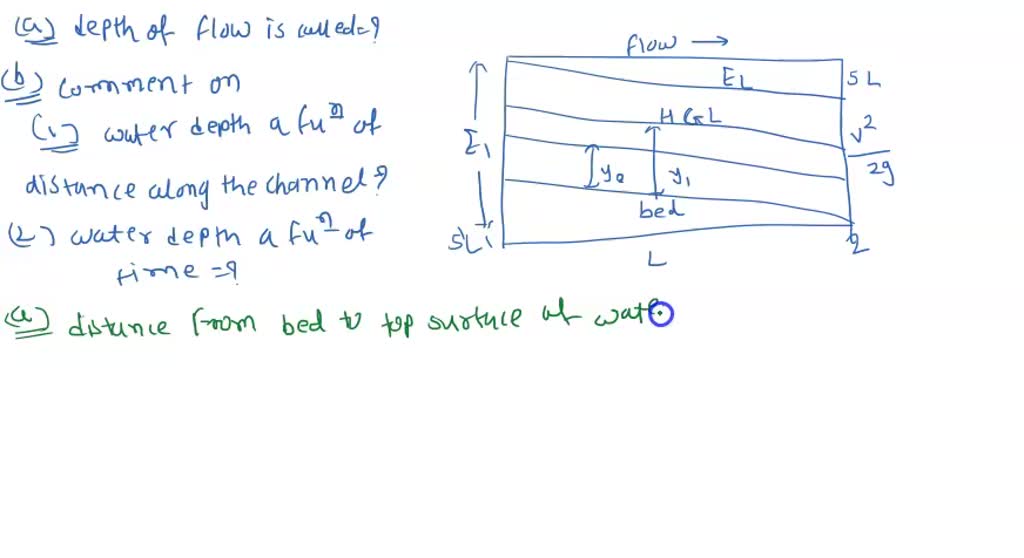 (a) depth of flow is called=?
(b) comment on
(1) water depth a fuⁿ of
distance along the channel?
(2) water depth a fuⁿ of
time =?
flow →
EL
SL
HGL
V²
2g
E₁
y₁
bed
SL
L
2
(a) distance from bed to top surface of wate